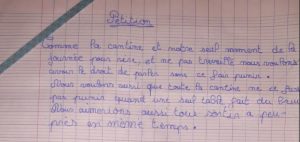 Pétition
Comme la cantine et notre seul moment de la
journée pour rire, et ne pas travaille nous voulons
avoir le droit de parler sans ce fair punir.
Nous voulons aussi que toute la cantine ne ce fasse
pas punir quand une seul table fait du bruit
Nous aimerions aussi tous sortir a peu
près en même temps.